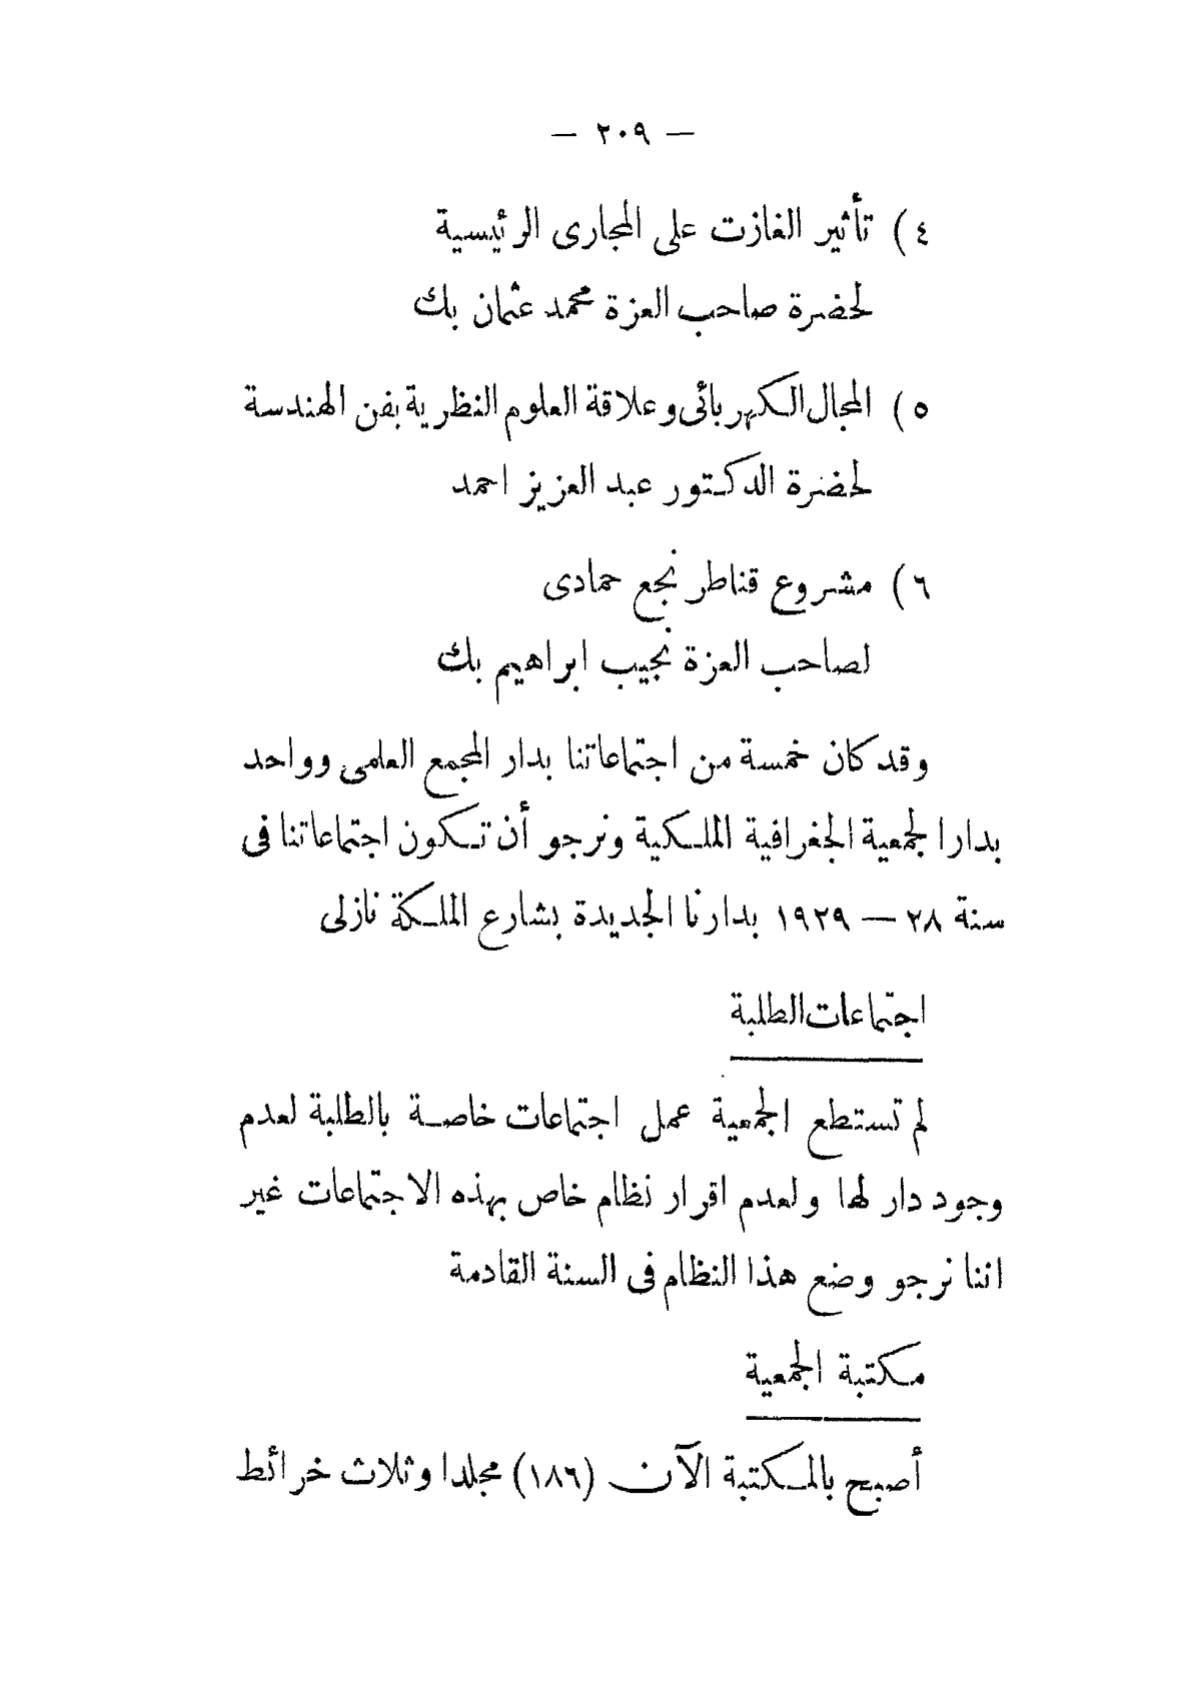 — ٢٠٩ —
٤) تأثير الغازت على المجارى الرئيسية
لحضرة صاحب العزة محمد عثمان بك
٥) المجال الكهربائى وعلاقة العلوم النظرية بفن الهندسة
لحضرة الدكتور عبد العزيز احمد
٦) مشروع قناطر نجع حمادى
لصاحب العزة نجيب ابراهيم بك
وقد كان خمسة من اجتماعاتنا بدار المجمع العلمى وواحد
بدارا لجمعية الجغرافية الملكية ونرجو أن تكون اجتماعاتنا فى
سنة ٢٨ — ١٩٢٩ بدارنا الجديدة بشارع الملكة نازلى
اجتماعات الطلبة
لم تستطع الجمعية عمل اجتماعات خاصة بالطلبة لعدم
وجود دار لها ولعدم اقرار نظام خاص بهذه الاجتماعات غير
اننا نرجو وضع هذا النظام فى السنة القادمة
مكتبة الجمعية
أصبح بالمكتبة الآن (١٨٦) مجلدا وثلاث خرائط